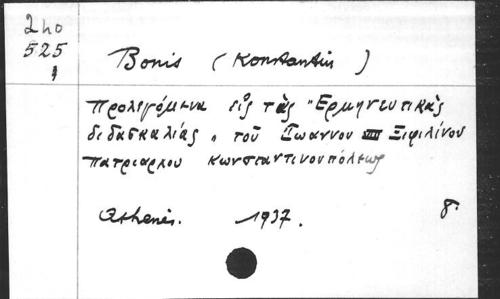 2ho
525
Bonis (Konstantin)
Προλεγόμενα εἰς τὰς "Ερμηνευτικὰς
διδασκαλίας" τοῦ Ἰωαννου VIII Ξιφιλίνου
πατριαρχου Κωνσταντινουπόλεως
Athenes. 1937. 8.